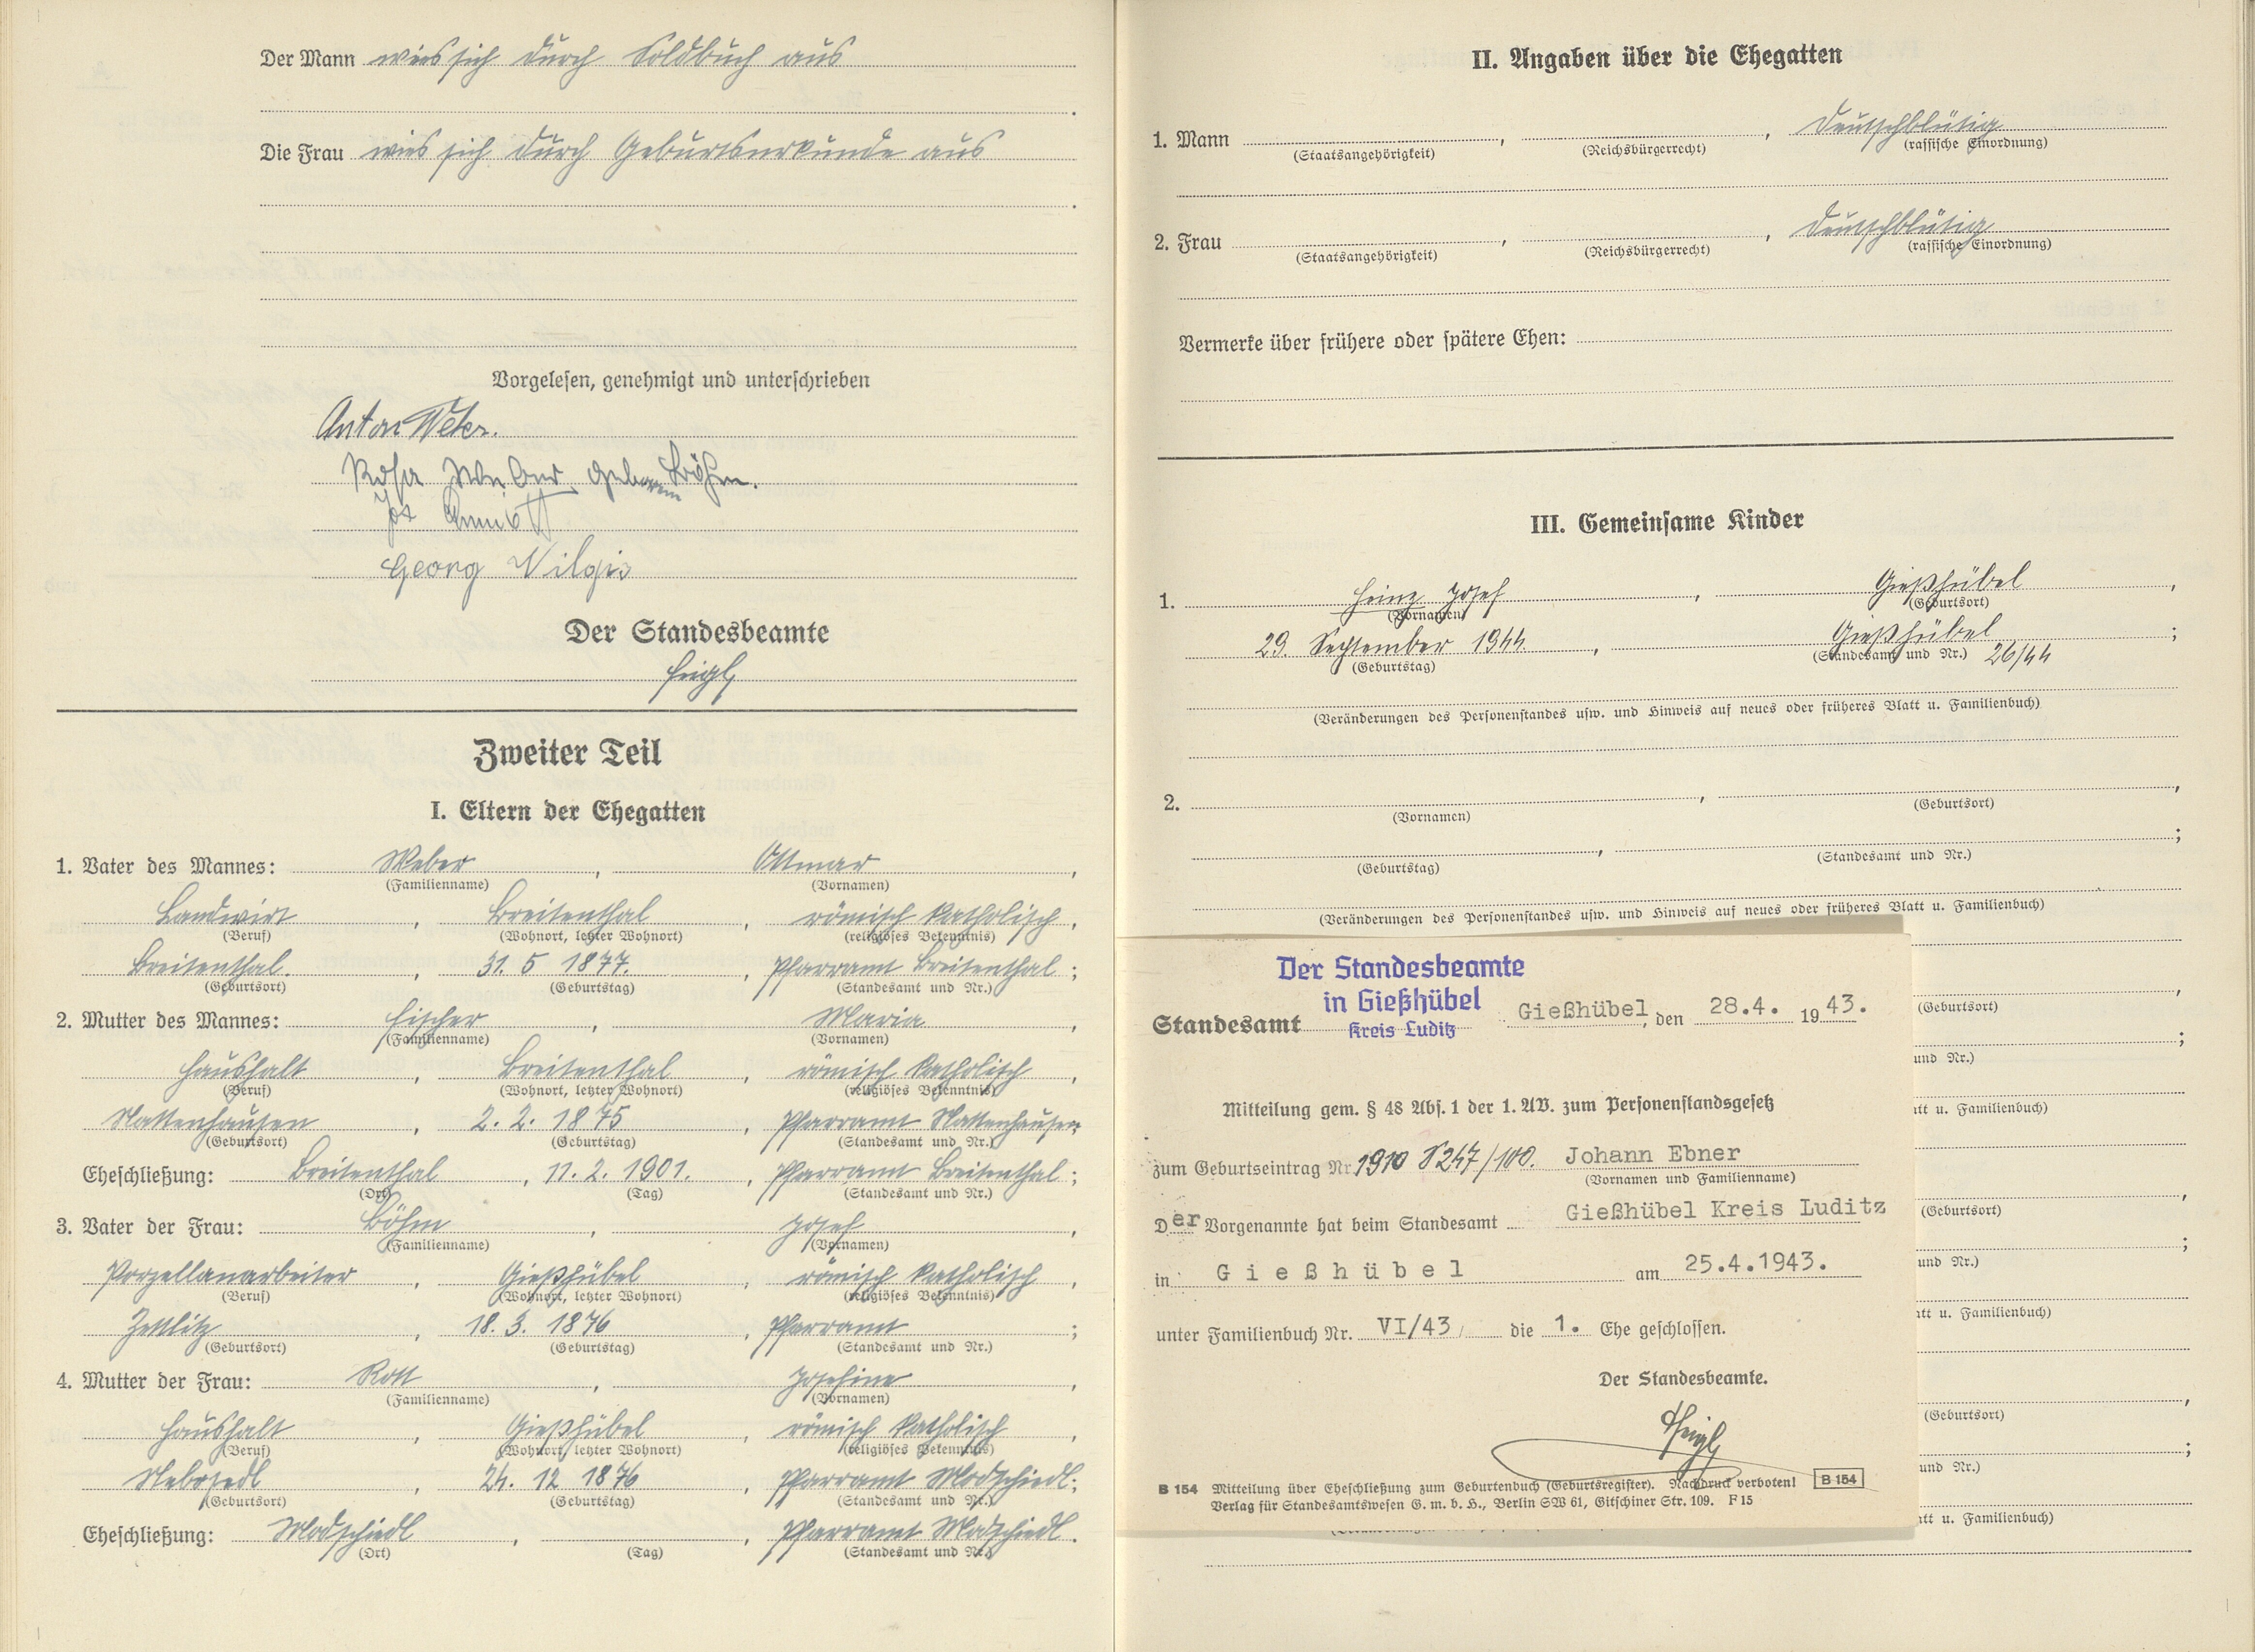 Der Mann wies sich durch Soldbuch aus
Die Frau wies sich durch Geburtsurkunde aus
Vorgelesen, genehmigt und unterschrieben
Anton Weber.
Rosa Weber geborene Böhm.
Jos
Georg Vilgis
Der Standesbeamte
Feigl
Zweiter Teil
I. Eltern der Ehegatten
1. Vater des Mannes: Weber, Ottmar,
(Familienname) (Vornamen)
Landwirt, Breitenthal, römisch katholisch,
(Beruf) (Wohnort, letzter Wohnort) (religiöses Bekenntnis)
Breitenthal., 31. 5 1877., Pfarramt Breitenthal;
(Geburtsort) (Geburtstag) (Standesamt und Nr.)
2. Mutter des Mannes: Fischer, Maria,
(Familienname) (Vornamen)
Haushalt, Breitenthal, römisch katholisch,
(Beruf) (Wohnort, letzter Wohnort) (religiöses Bekenntnis)
Nattenhausen, 2. 2. 1875, Pfarramt Nattenhausen
(Geburtsort) (Geburtstag) (Standesamt und Nr.)
Eheschließung: Breitenthal, 11. 2. 1901., Pfarramt Breitenthal;
(Ort) (Tag) (Standesamt und Nr.)
3. Vater der Frau: Böhm, Josef,
(Familienname) (Vornamen)
Porzellanarbeiter, Gießhübel, römisch katholisch,
(Beruf) (Wohnort, letzter Wohnort) (religiöses Bekenntnis)
Zettlitz, 18. 3. 1876, Pfarramt;
(Geburtsort) (Geburtstag) (Standesamt und Nr.)
4. Mutter der Frau: Rott, Josefine,
(Familienname) (Vornamen)
Haushalt, Gießhübel, römisch katholisch,
(Beruf) (Wohnort, letzter Wohnort) (religiöses Bekenntnis)
Nebosedl, 24. 12 1876, Pfarramt Modschiedl;
(Geburtsort) (Geburtstag) (Standesamt und Nr.)
Eheschließung: Modschiedl, , Pfarramt Modschiedl.
(Ort) (Tag) (Standesamt und Nr.)
II. Angaben über die Ehegatten
1. Mann , , deutschblütig
(Staatsangehörigkeit) (Reichsbürgerrecht) (rassische Einordnung)
2. Frau , , deutschblütig
(Staatsangehörigkeit) (Reichsbürgerrecht) (rassische Einordnung)
Vermerke über frühere oder spätere Ehen:
III. Gemeinsame Kinder
1. Heinz Josef, Gießhübel,
(Vornamen) (Geburtsort)
29. September 1944, Gießhübel;
(Geburtstag) (Standesamt und Nr.) 26/44
(Veränderungen des Personenstandes usw. und Hinweis auf neues oder früheres Blatt u. Familienbuch)
2. , ,
(Vornamen) (Geburtsort)
, ;
(Geburtstag) (Standesamt und Nr.)
(Veränderungen des Personenstandes usw. und Hinweis auf neues oder früheres Blatt u. Familienbuch)
Der Standesbeamte
in Gießhübel
Kreis Luditz
Standesamt Gießhübel, den 28.4. 1943.
Mitteilung gem. § 48 Abs. 1 der 1. AV. zum Personenstandsgesetz
zum Geburtseintrag Nr. 1910 S 247/100. Johann Ebner
(Vornamen und Familienname)
Der Vorgenannte hat beim Standesamt Gießhübel Kreis Luditz
in Gießhübel am 25.4.1943.
unter Familienbuch Nr. VI/43, die 1. Ehe geschlossen.
Der Standesbeamte.
Feigl
B 154 Mitteilung über Eheschließung zum Geburtenbuch (Geburtsregister). Nachdruck verboten! B 154
Verlag für Standesamtswesen G. m. b. H., Berlin SW 61, Gitschiner Str. 109. F 15
(Geburtsort)
und Nr.)
tt u. Familienbuch)
(Geburtsort)
und Nr.)
tt u. Familienbuch)
(Geburtsort)
und Nr.)
tt u. Familienbuch)